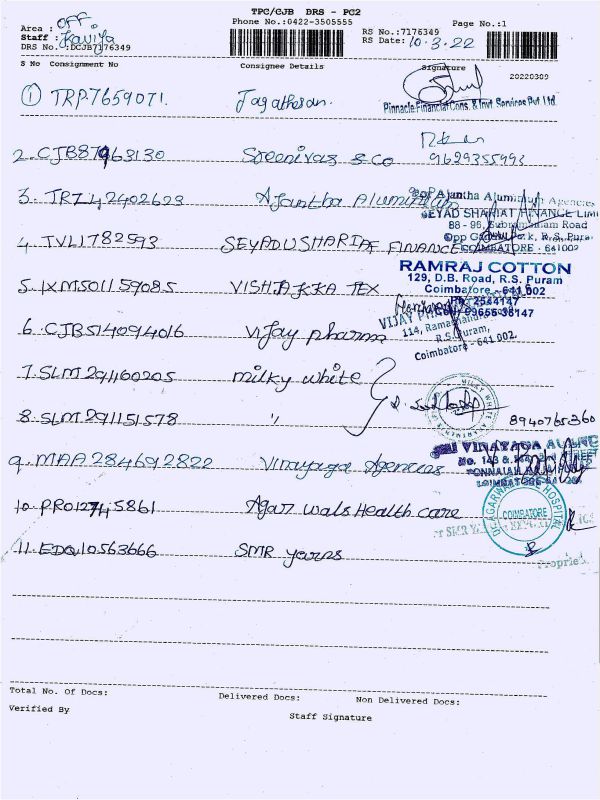 TPC/CJB DRS - PC2
Phone No.:0422-3505555
Page No.:1
Area : OFF
Staff : Kaviya
DRS No.:DCJB7176349
RS No.:7176349
RS Date: 10.3.22
S No Consignment No Consignee Details Signature
20220309
1 TRP7659071. Jagatheesan.
Pinnacle Financial Cons. & Invt Services Pvt Ltd.
2. CJB879963130 Sreenivas & Co 9629355993
3. TRZ42402623 Ajantha Aluminium
Ajantha Aluminium Agencies
SEYAD SHARIAT FINANCE LIMI
88 - 96, Subramaniam Road
COIMBATORE - 641002
4. TVL1782593 SEYADUSHARIAF FINANCE
RAMRAJ COTTON
129, D.B. Road, R.S. Puram
Coimbatore - 641 002
Ph: 2544147
Cell: 9965538147
5. IXM501159085 VISHAKKA TEX
6. CJB514094016 Vijay pharma
VIJAY PHARMA
114, Ramachandra
R.S. Puram,
Coimbatore - 641 002.
7. SLM291160205 milky white
MILKY WHITE
8. SLM291151578 "
8940765360
9. MAA284692822 Vinayaga Agencies
SRI VINAYAGA AGENC
COIMBATORE-641 001
10. PRO12745861 Agarwals Health care
HOSPITAL
COIMBATORE
11. EDQ10563666 SMR yarns
Proprie
Total No. Of Docs: Delivered Docs: Non Delivered Docs:
Verified By
Staff Signature